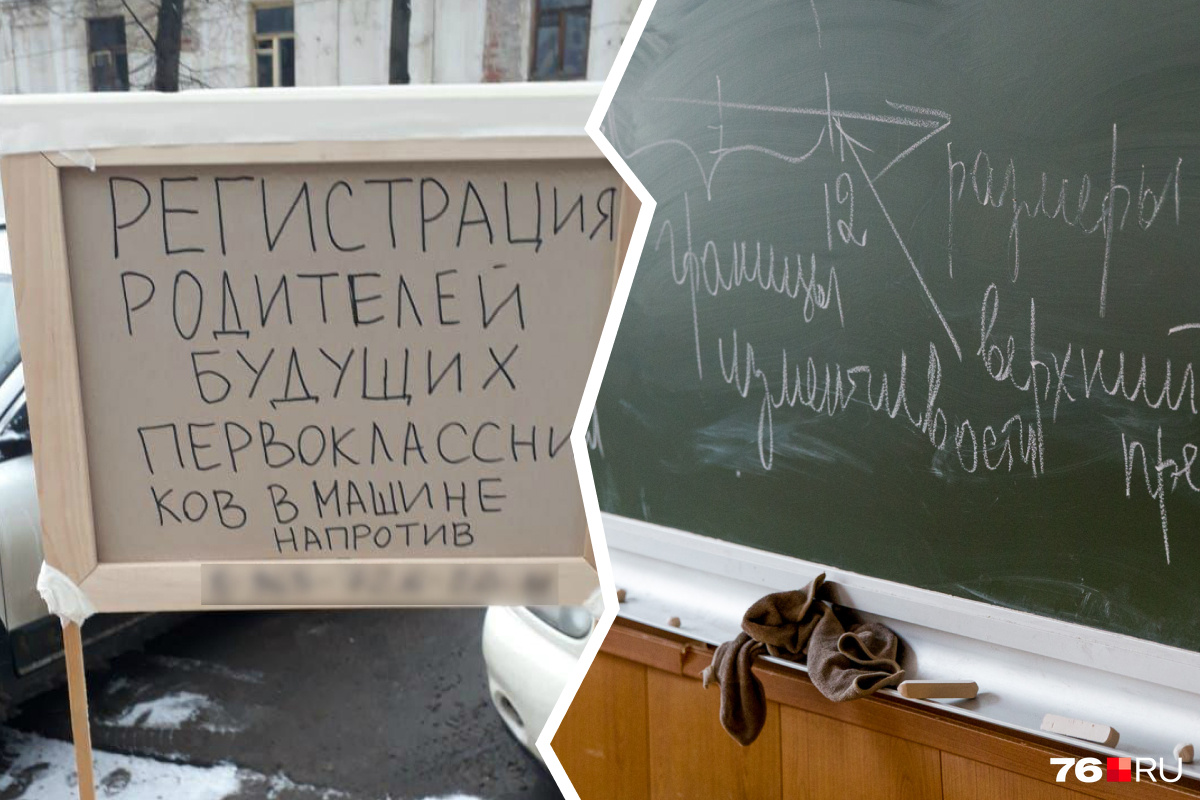 РЕГИСТРАЦИЯ
РОДИТЕЛЕЙ
БУДУЩИХ
ПЕРВОКЛАССНИ
КОВ В МАШИНЕ
НАПРОТИВ
7
12
размеры
границы
верхний
изменчивости
пре
76.RU